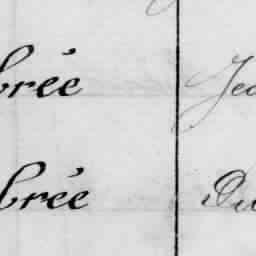 brée Jea
brée Du